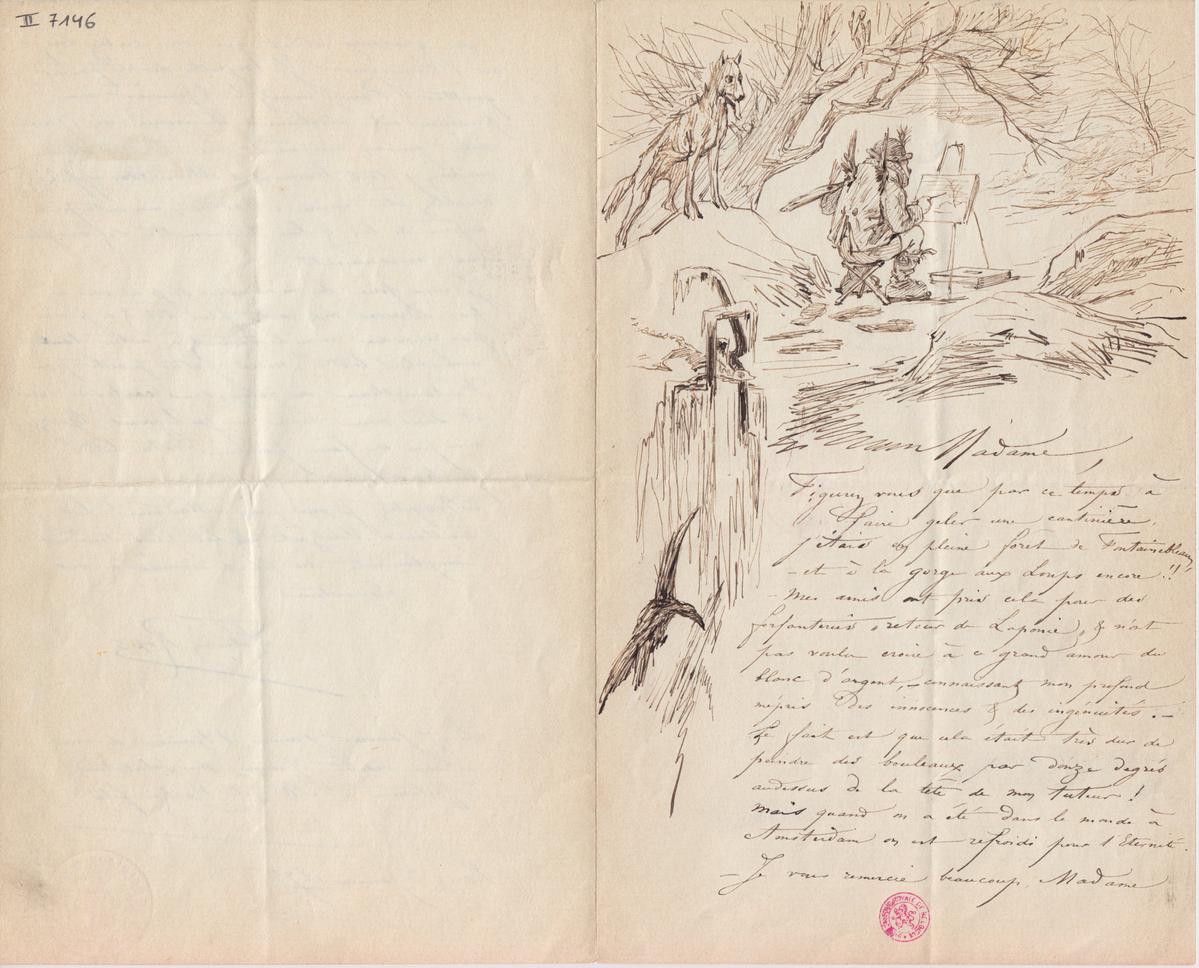 II 7146
Madame,
Figurez vous que par ce temps à
faire geler une cantinière,
j'étais en pleine forêt de Fontainebleau,
- et à la gorge aux Loups encore !!
- Mes amis ont pris cela pour des
forfanteries "retour de Laponie", & n'ont
pas voulu croire à ce grand amour du
blanc d'argent, - connaissant mon profond
mépris des innocences & des ingénuités. -
Le fait est que cela était très dur de
peindre des bouleaux par douze degrés
audessus de la tête de mon tuteur !
mais quand on a été dans le monde à
Amsterdam on est refroidi pour l'Eternité.
- Je vous remercie beaucoup, Madame